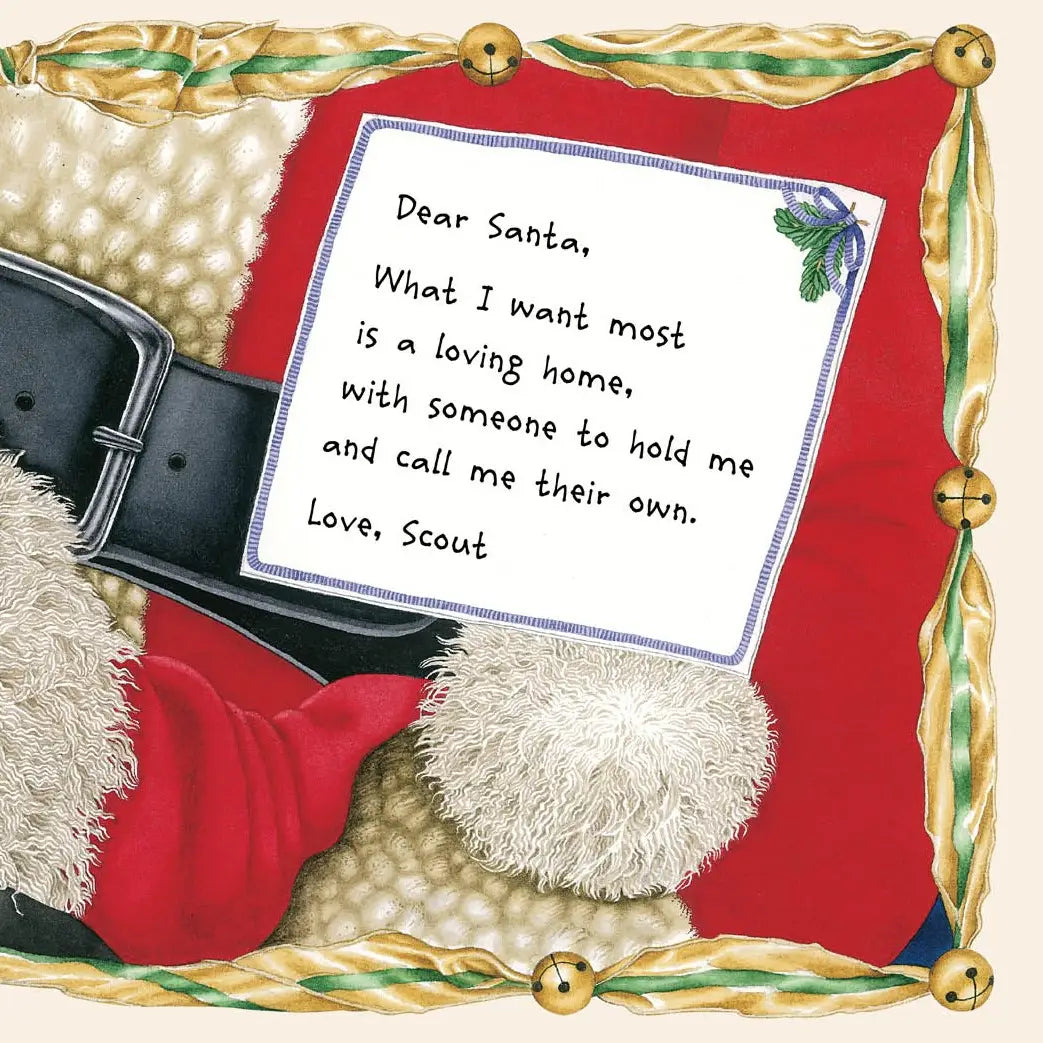 Dear Santa,
What I want most
is a loving home,
with someone to hold me
and call me their own.
Love, Scout